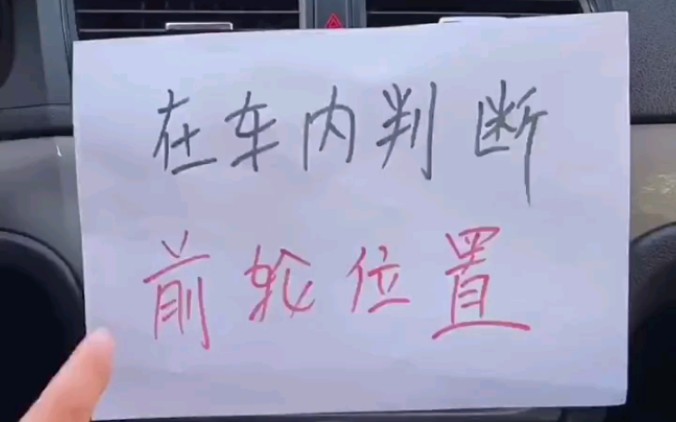 在车内判断
前轮位置